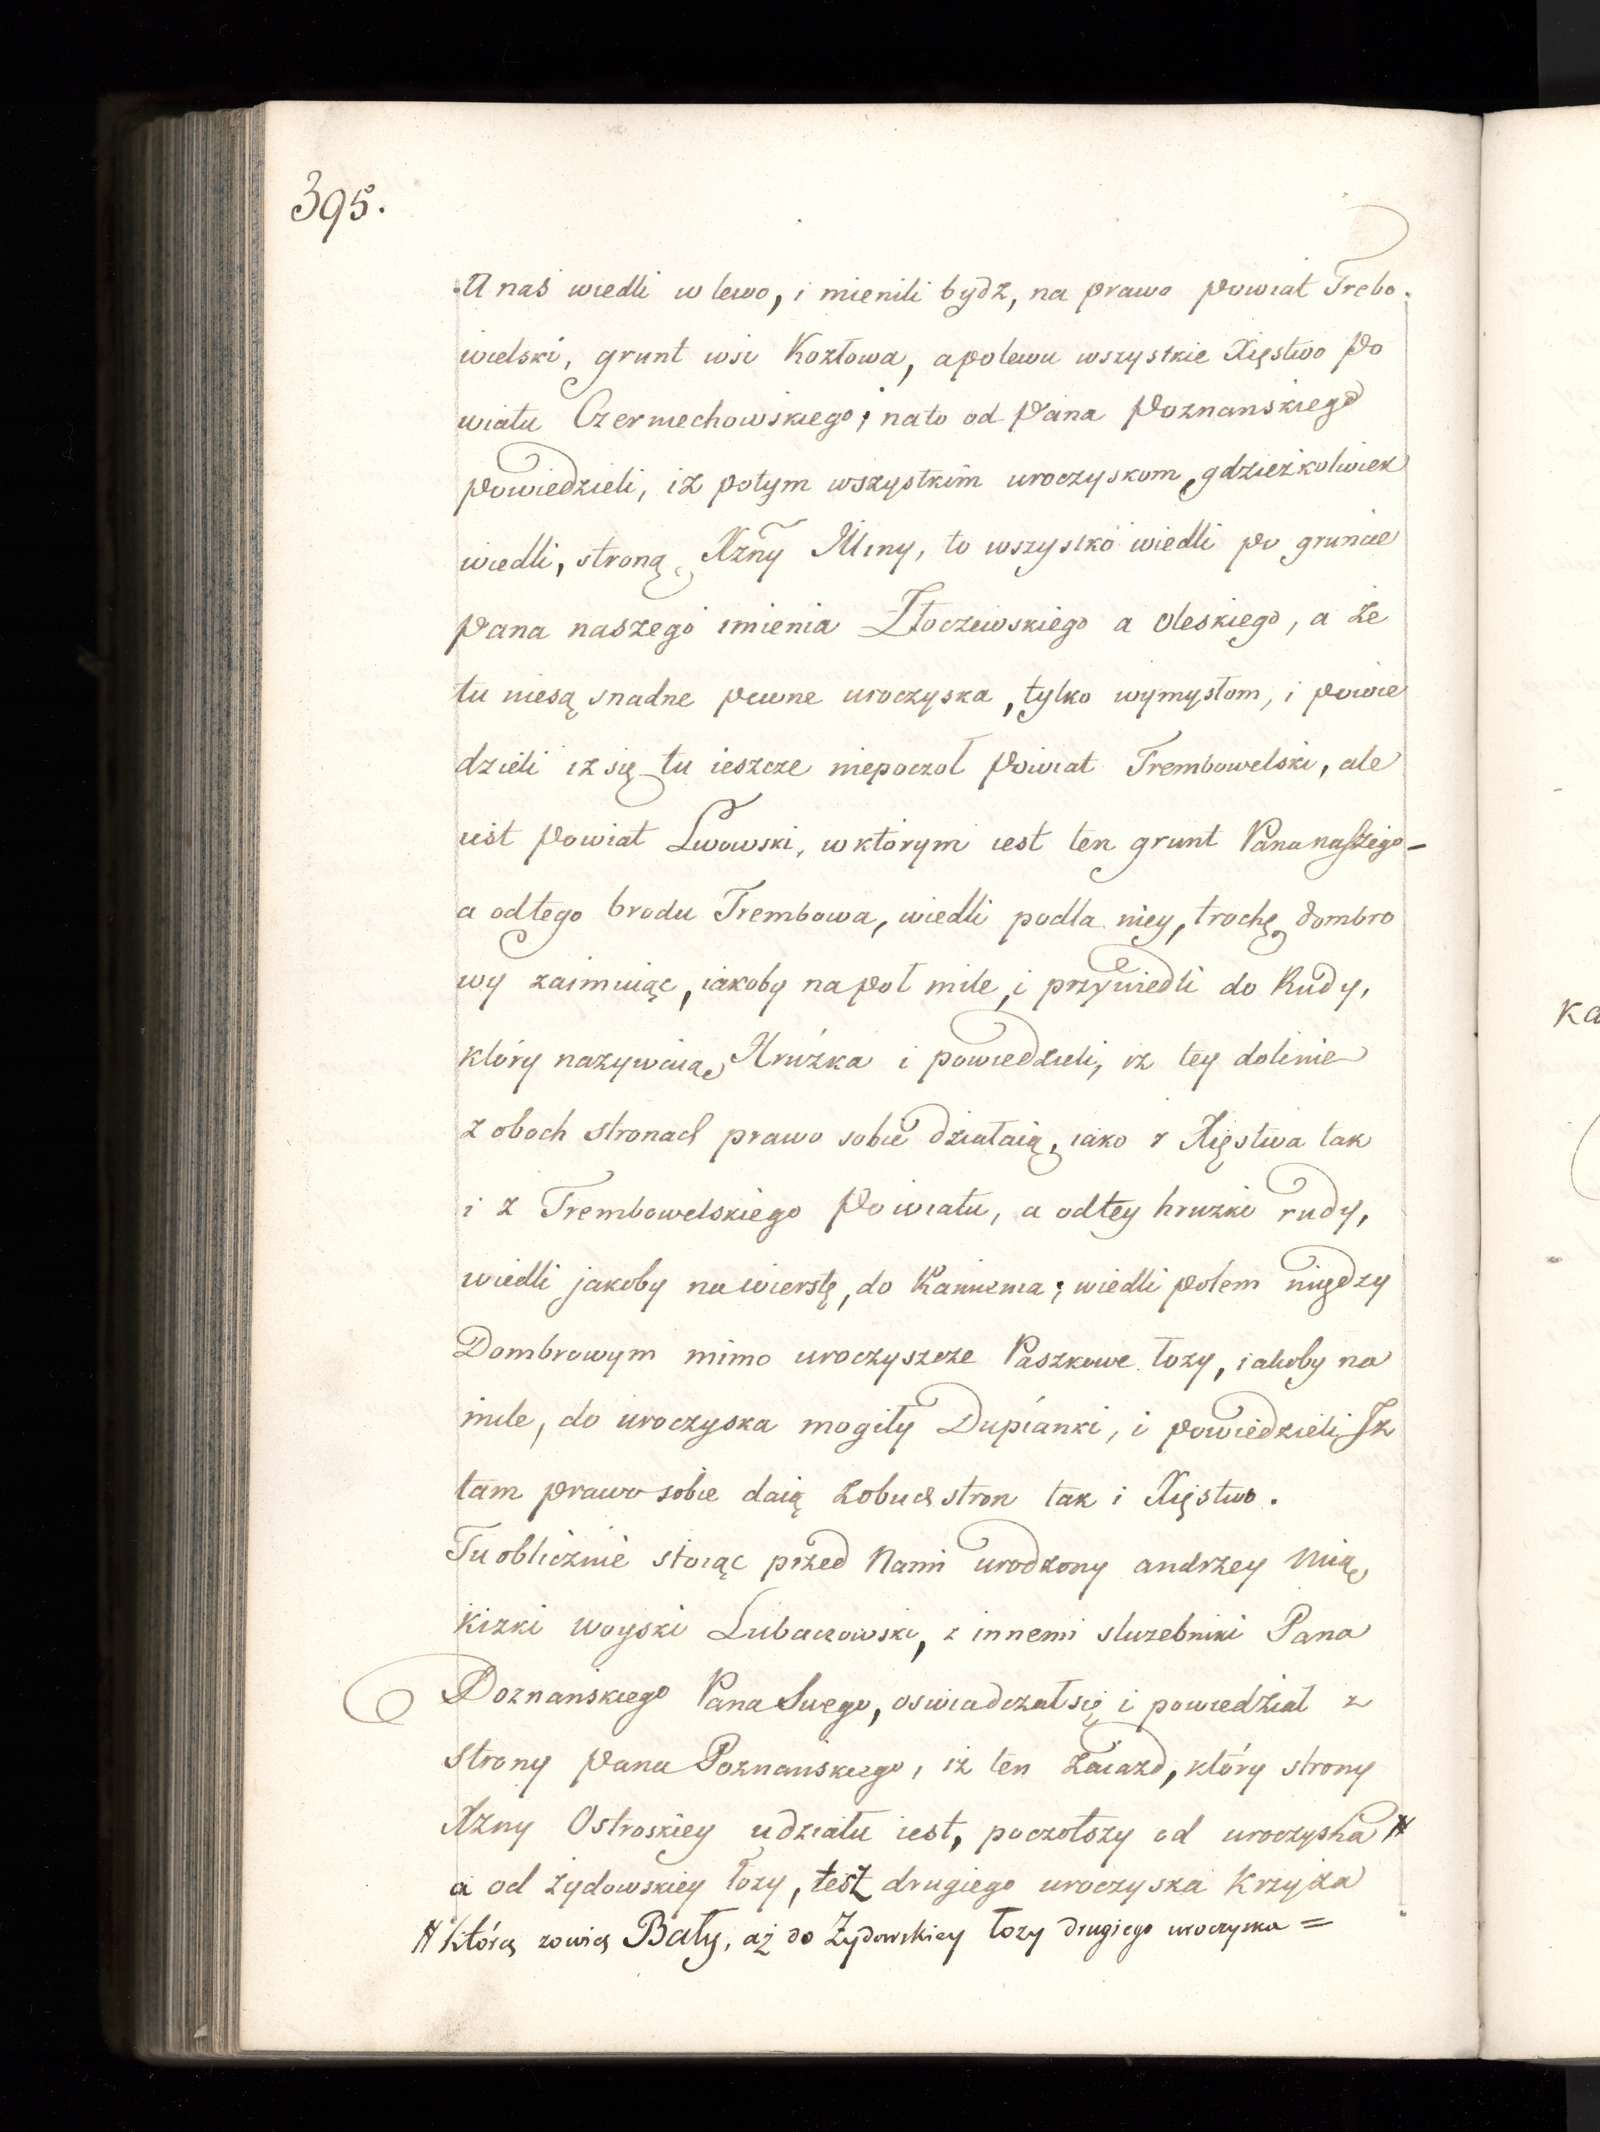 395.
A nas wiedli w lewo, i mienili bydz, na prawo Powiat Trebo.
wielski, grunt wsi Kozłowa, apolewu wszystkie Xięstwo Po
wiatu Czermechowskiego, nato od Pana Poznanskiego
powiedzieli, iz potym wszystkim uroczyskom, gdzieżkolwiek
wiedli, stroną Xzny Jlliny, to wszystko wiedli po gruncie
Pana naszego imienia Złoczewskiego a Oleskiego, a że
tu niesą snadne pewne uroczyska, tylko wymysłom, i powie
dzieli iz się tu ieszcze niepoczoł Powiat Trembowelski, ale
iest Powiat Lwowski, wktórym iest ten grunt Pana naszego –
a odtego brodu Trembowa, wiedli podla niey, trochę dombro
wy zaimuiąc, iakoby napoł mile, i przywiedli do Rudy,
ktory nazywaią Hruzka i powiedzieli, iz tey dolinie
z oboch stronach prawo sobie działaią, iako z Xięstwa tak
i z Trembowelskiego Powiatu, a odtey hruzki rudy,
wiedli jakoby na wierstę, do Kamienia; wiedli polem między
Dombrowym mimo uroczyszcze Paszkowe łozy, iakoby na
mile, do uroczyska mogiły Dupianki, i powiedzieli Iz
tam prawo sobie daią zobuch stron tak i Xięstwo.
Tu oblicznie stoiąc przed Nami urodzony andrzey Mią
kizki woyski Lubaczowski, z innemi sluzebniki Pana
Poznanskiego Pana Swego, oswiadczał się i powiedział z
strony Pana Poznanskiego, iż ten zaiazd, który strony
Xzny Ostroskiey udziału iest, poczołszy od uroczyska #
a od żydowskiey łozy, tesz drugiego uroczyska Krzyża
# którą zowią Bały, aż do Żydowskiey łozy drugiego uroczyska =
ka